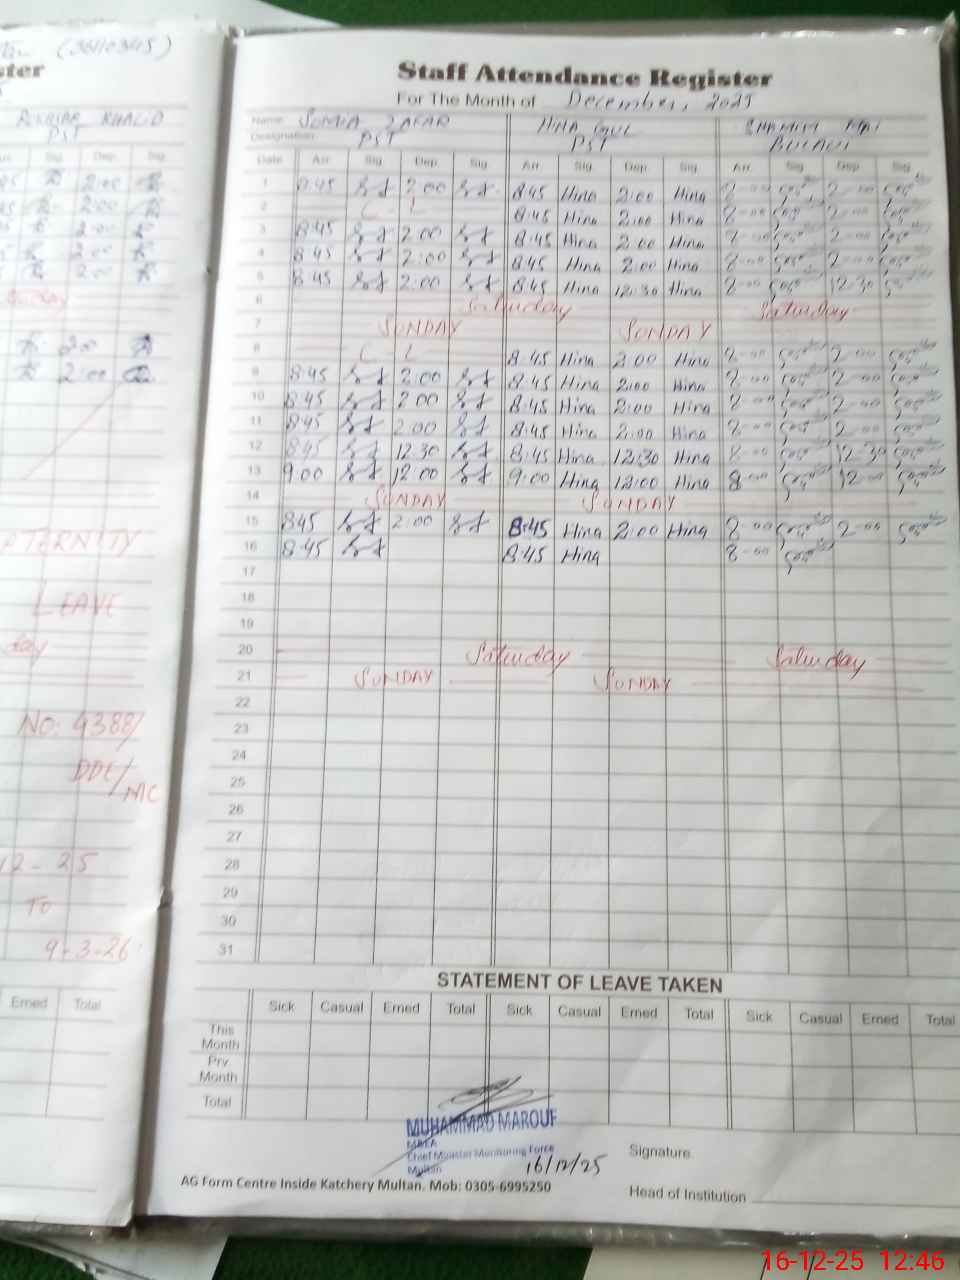 (36110345)
ster
KHALID
PST
Sig. Dep. Sig.
2:00
2:00
2:00
2:00
2:00
2:00
2:00
MATERNITY
LEAVE
day
NO: 4388/
DDE/
MC
12-25
To
9-3-26
Erned Total
Staff Attendance Register
For The Month of December, 2025
Name SONIA ZAFAR HINA GUL SHAMIM MAI
Designation PST PST
Date Arr. Sig. Dep. Sig. Arr. Sig. Dep. Sig. Arr. Sig. Dep. Sig.
1 8:45 2:00 8:45 Hina 2:00 Hina 8-00 2-00
2 C - L 8:45 Hina 2:00 Hina 8-00 2-00
3 8:45 2:00 8:45 Hina 2:00 Hina 8-00 2-00
4 8:45 2:00 8:45 Hina 2:00 Hina 8-00 2-00
5 8:45 2:00 8:45 Hina 12:30 Hina 8-00 12-30
6 Saturday Saturday
7 SUNDAY SUNDAY
8 C - L 8:45 Hina 2:00 Hina 8-00 2-00
9 8:45 2:00 8:45 Hina 2:00 Hina 8-00 2-00
10 8:45 2:00 8:45 Hina 2:00 Hina 8-00 2-00
11 8:45 2:00 8:45 Hina 2:00 Hina 8-00 2-00
12 8:45 12:30 8:45 Hina 12:30 Hina 8-00 12-30
13 9:00 12:00 9:00 Hina 12:00 Hina 8-00 12-00
14 SUNDAY SUNDAY
15 8:45 2:00 8:45 Hina 2:00 Hina 8-00 2-00
16 8:45 8:45 Hina 8-00
17
18
19
20 Saturday Saturday
21 SUNDAY SUNDAY
22
23
24
25
26
27
28
29
30
31
STATEMENT OF LEAVE TAKEN
Sick Casual Erned Total Sick Casual Erned Total Sick Casual Erned Total
This Month
Prv. Month
Total
MUHAMMAD MAROUF
MBEA
Chief Minister Monitoring Force
Multan
16/12/25
Signature.
AG Form Centre Inside Katchery Multan. Mob: 0305-6995250
Head of Institution
16-12-25 12:46